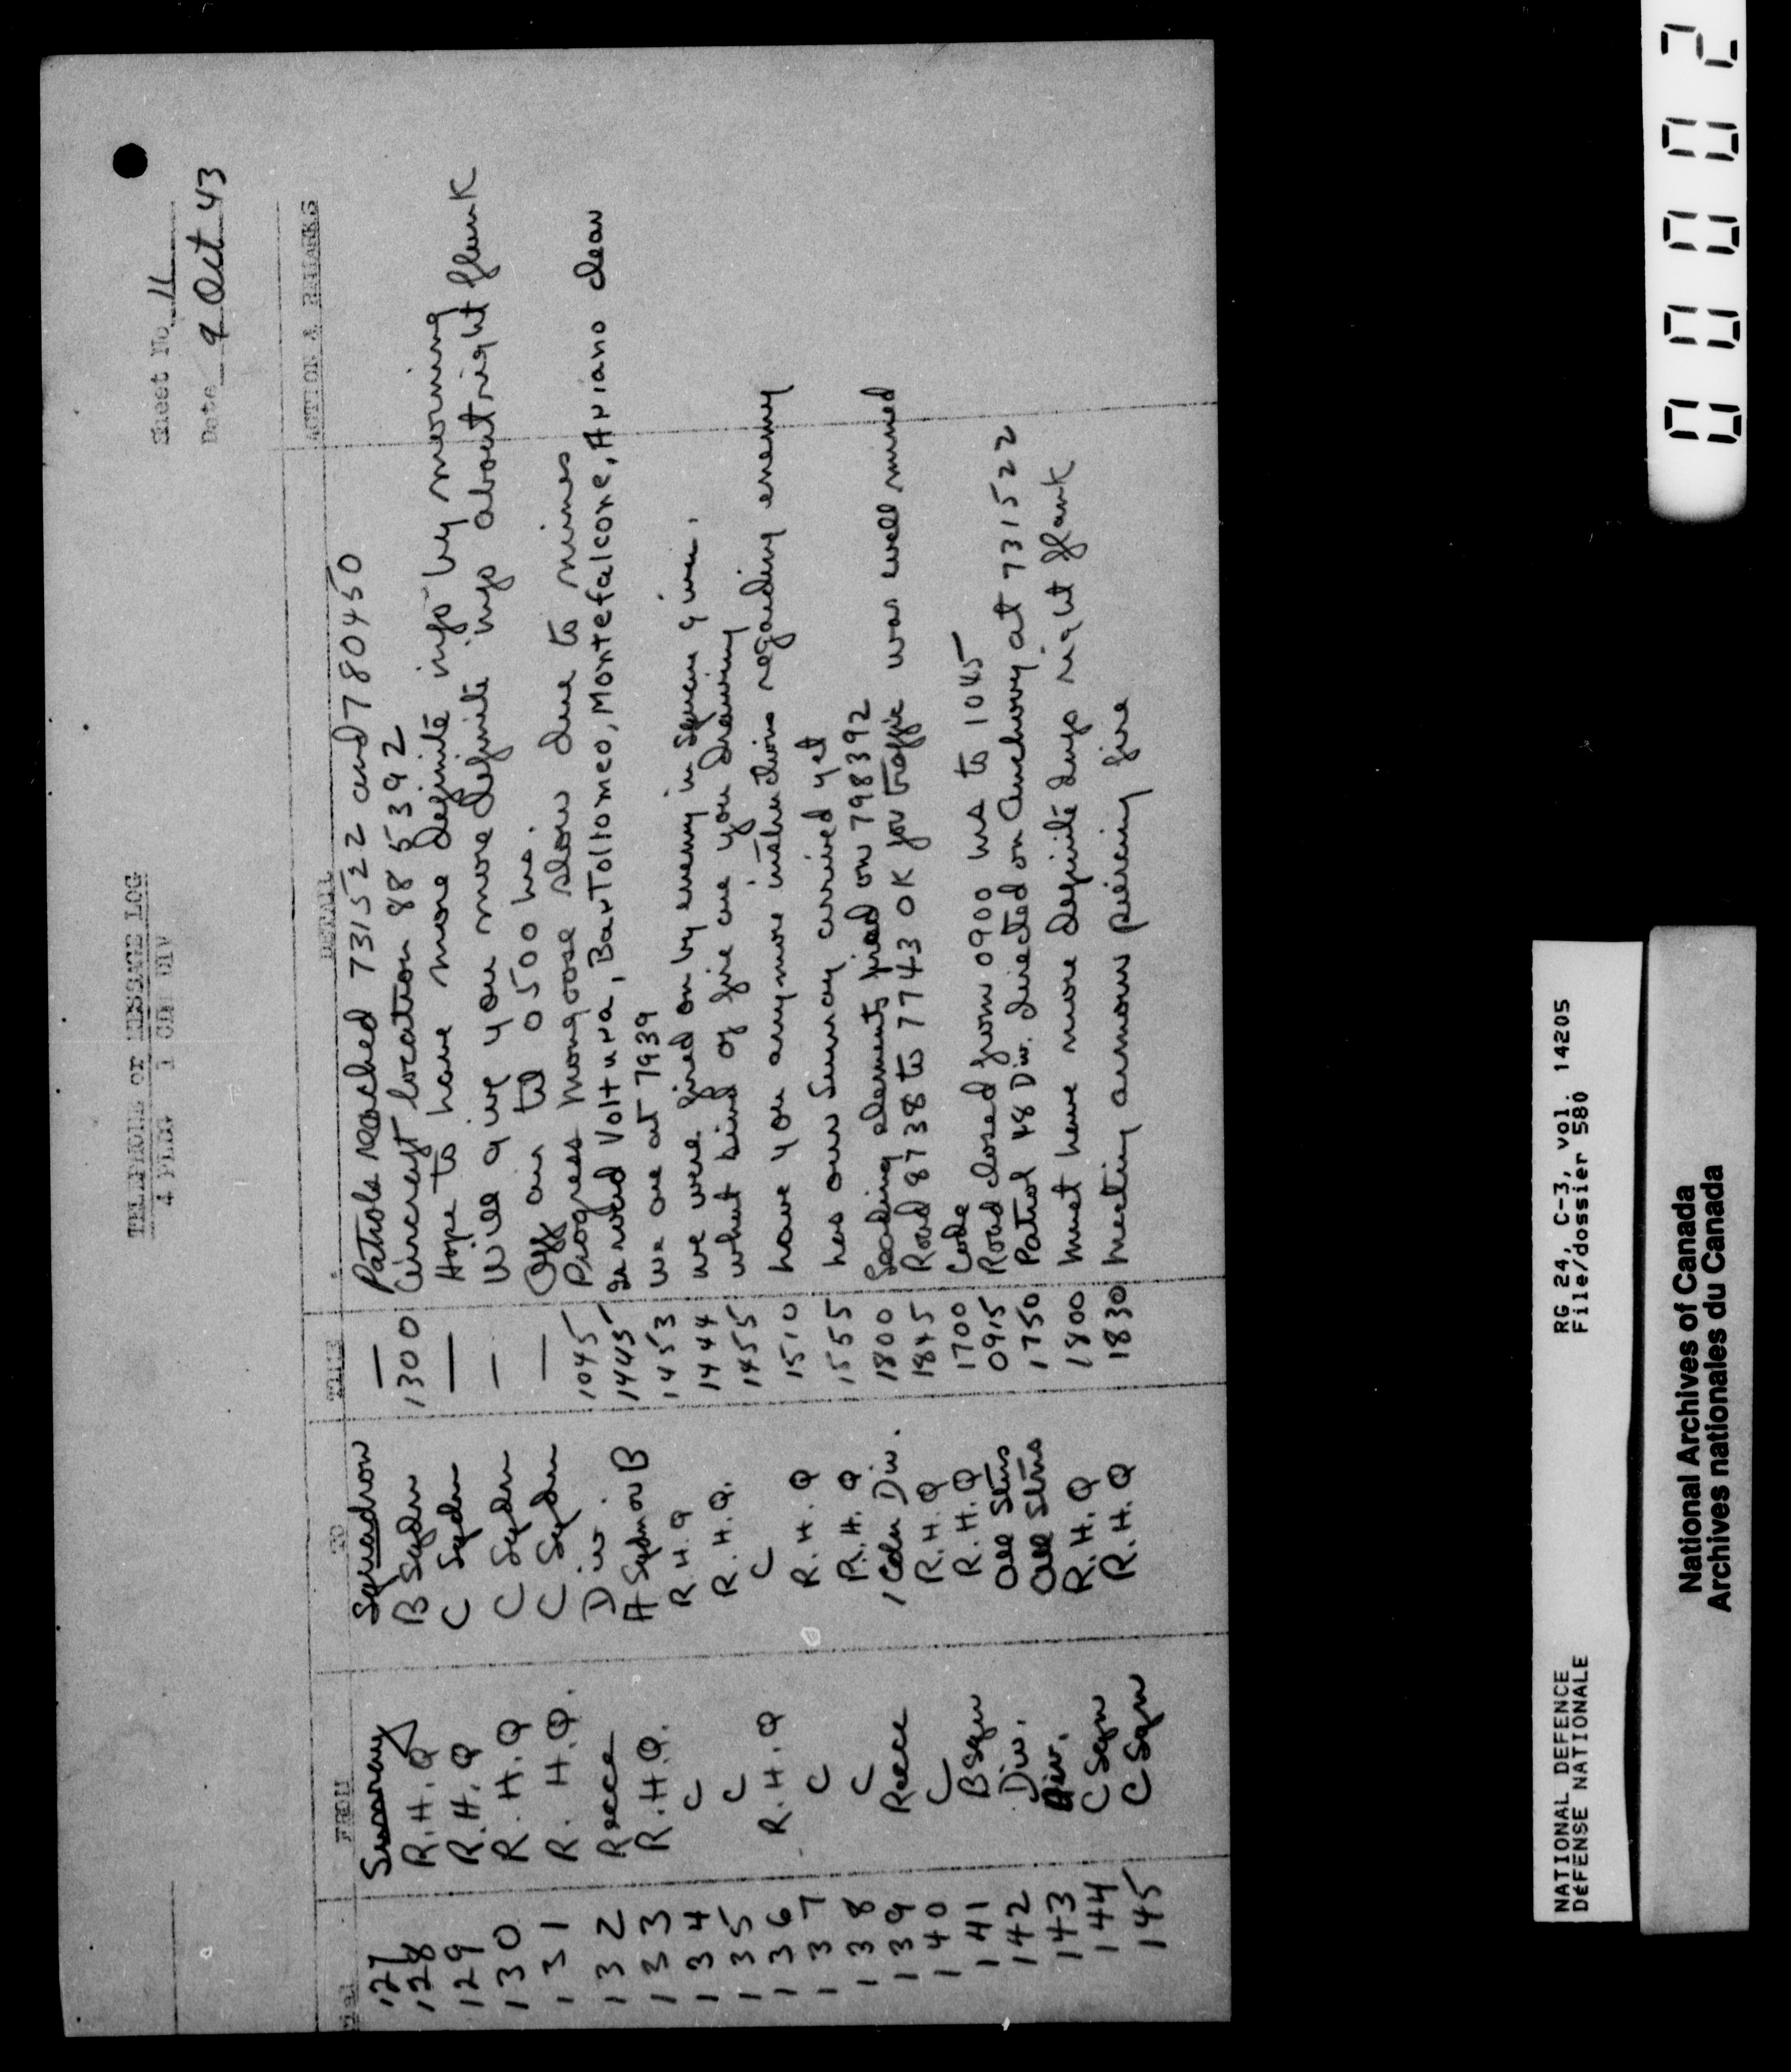 Sheet No. 11
Date 9 Oct 43
TELEPHONE or MESSAGE LOG
4 PLDG 1 CDN DIV
FROM TO TIME DETAIL ACTION & REMARKS
127 Summary Squadron — Patrols reached 731522 and 780450
128 R.H.Q B Sqdn 1300 Aircraft location 885392
129 R.H.Q C Sqdn — Hope to have more definite info by morning
130 R.H.Q C Sqdn — Will give you more definite info about right flank
131 R.H.Q. C Sqdn — Off air til 0500 hrs.
132 Recce Div. 1045 Progress mongoose slow due to mines
133 R.H.Q. A Sqdn or B 1445 Is road Voltura, Bartollomeo, Montefalcone, Ariano clear
134 C R.H.Q 1453 we are at 7939
135 C R.H.Q. 1444 we were fired on by enemy in square given.
136 R.H.Q C 1455 what kind of fire are you drawing
137 C R.H.Q 1510 have you anymore instructions regarding enemy
138 C R.H.Q 1555 has our Sunray arrived yet
139 Recce 1 Cdn Div. 1800 Leading elements fired on 798392
140 C R.H.Q 1845 Road 8738 to 7743 OK for traffic was well mined
141 B Sqn R.H.Q 1700 Code
142 Div. All Stns 0915 Road closed from 0900 hrs to 1045
143 Div. All Stns 1750 Patrol 48 Div. directed on Anchovy at 731522
144 C Sqn R.H.Q 1800 Must have more definite dugs right flank
145 C Sqn R.H.Q 1830 Meeting armour piercing fire
NATIONAL DEFENCE RG 24, C-3, vol. 14205
DÉFENSE NATIONALE File/dossier 580
National Archives of Canada
Archives nationales du Canada
00002